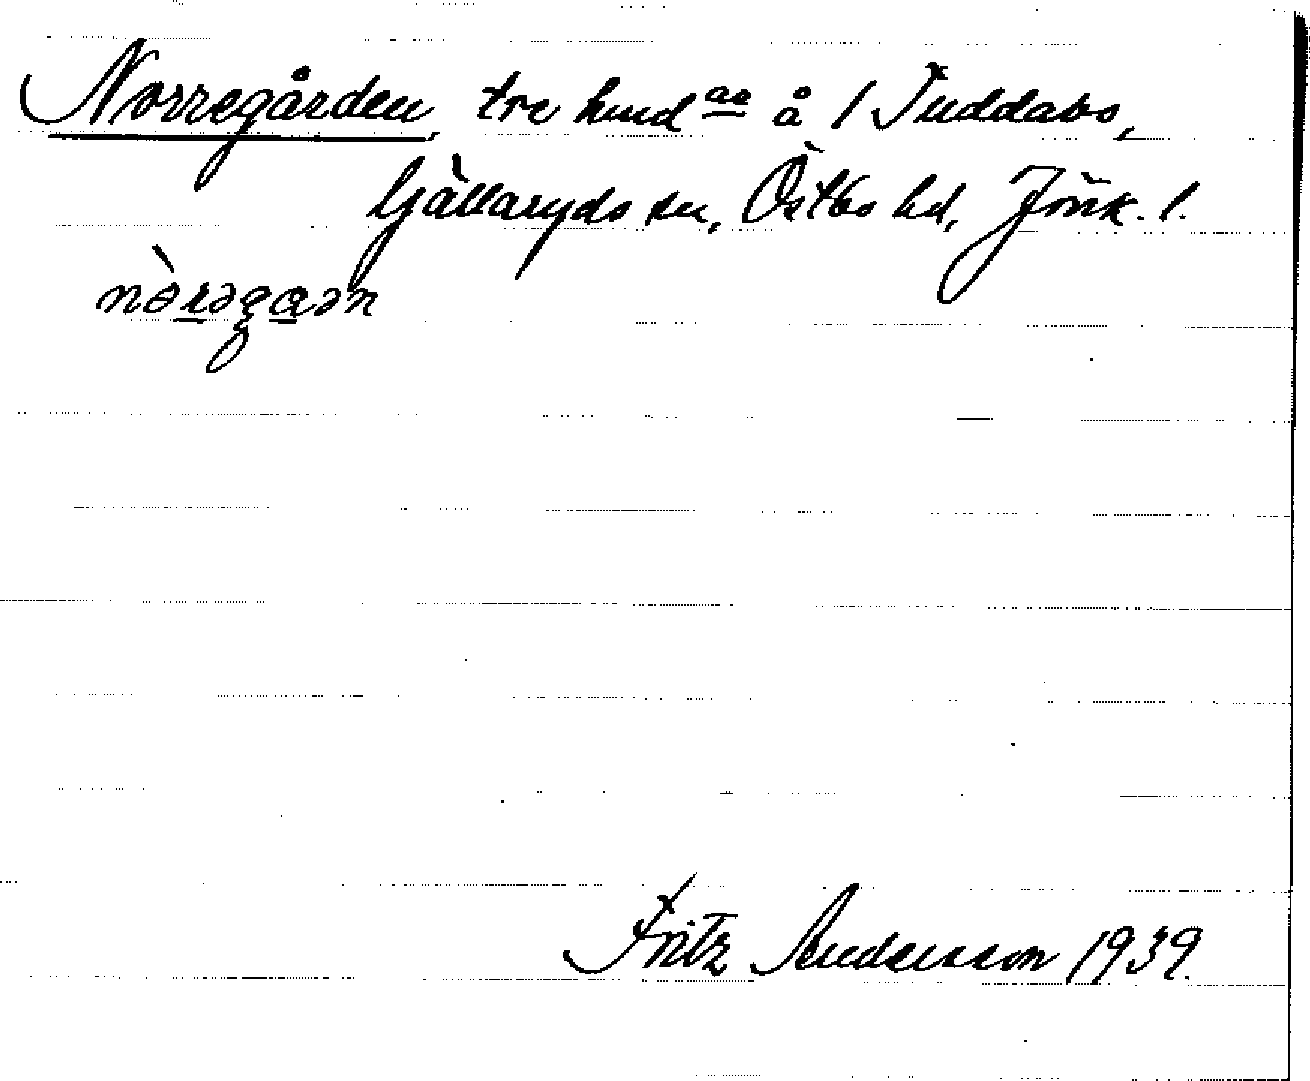 Norregården, tre hmd aa å 1 Tuddabo,
Gällaryds sn, Östbo hd, Jönk. l.
nòrəgɑən
Fritz Andersson 1939.